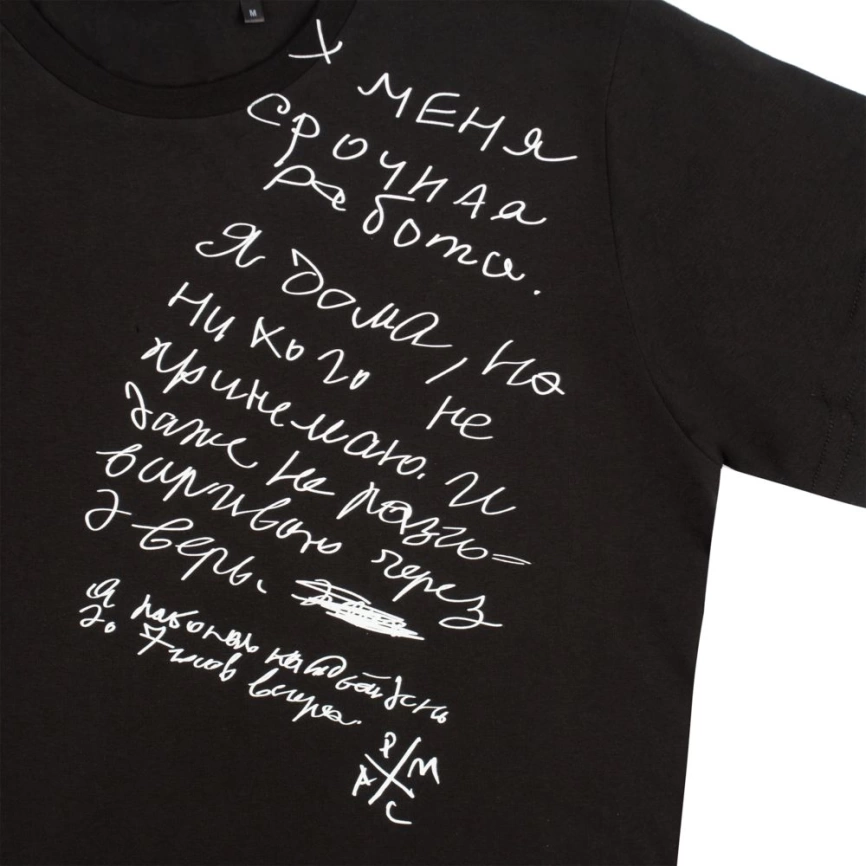 M
У
МЕНЯ
СРОЧНАЯ
работа.
Я дома, но
никого не
принемаю. И
даже не разго=
вариваю через
дверь.
Я работаю каждый день
до 7 часов вечера.
Р/М
А/С